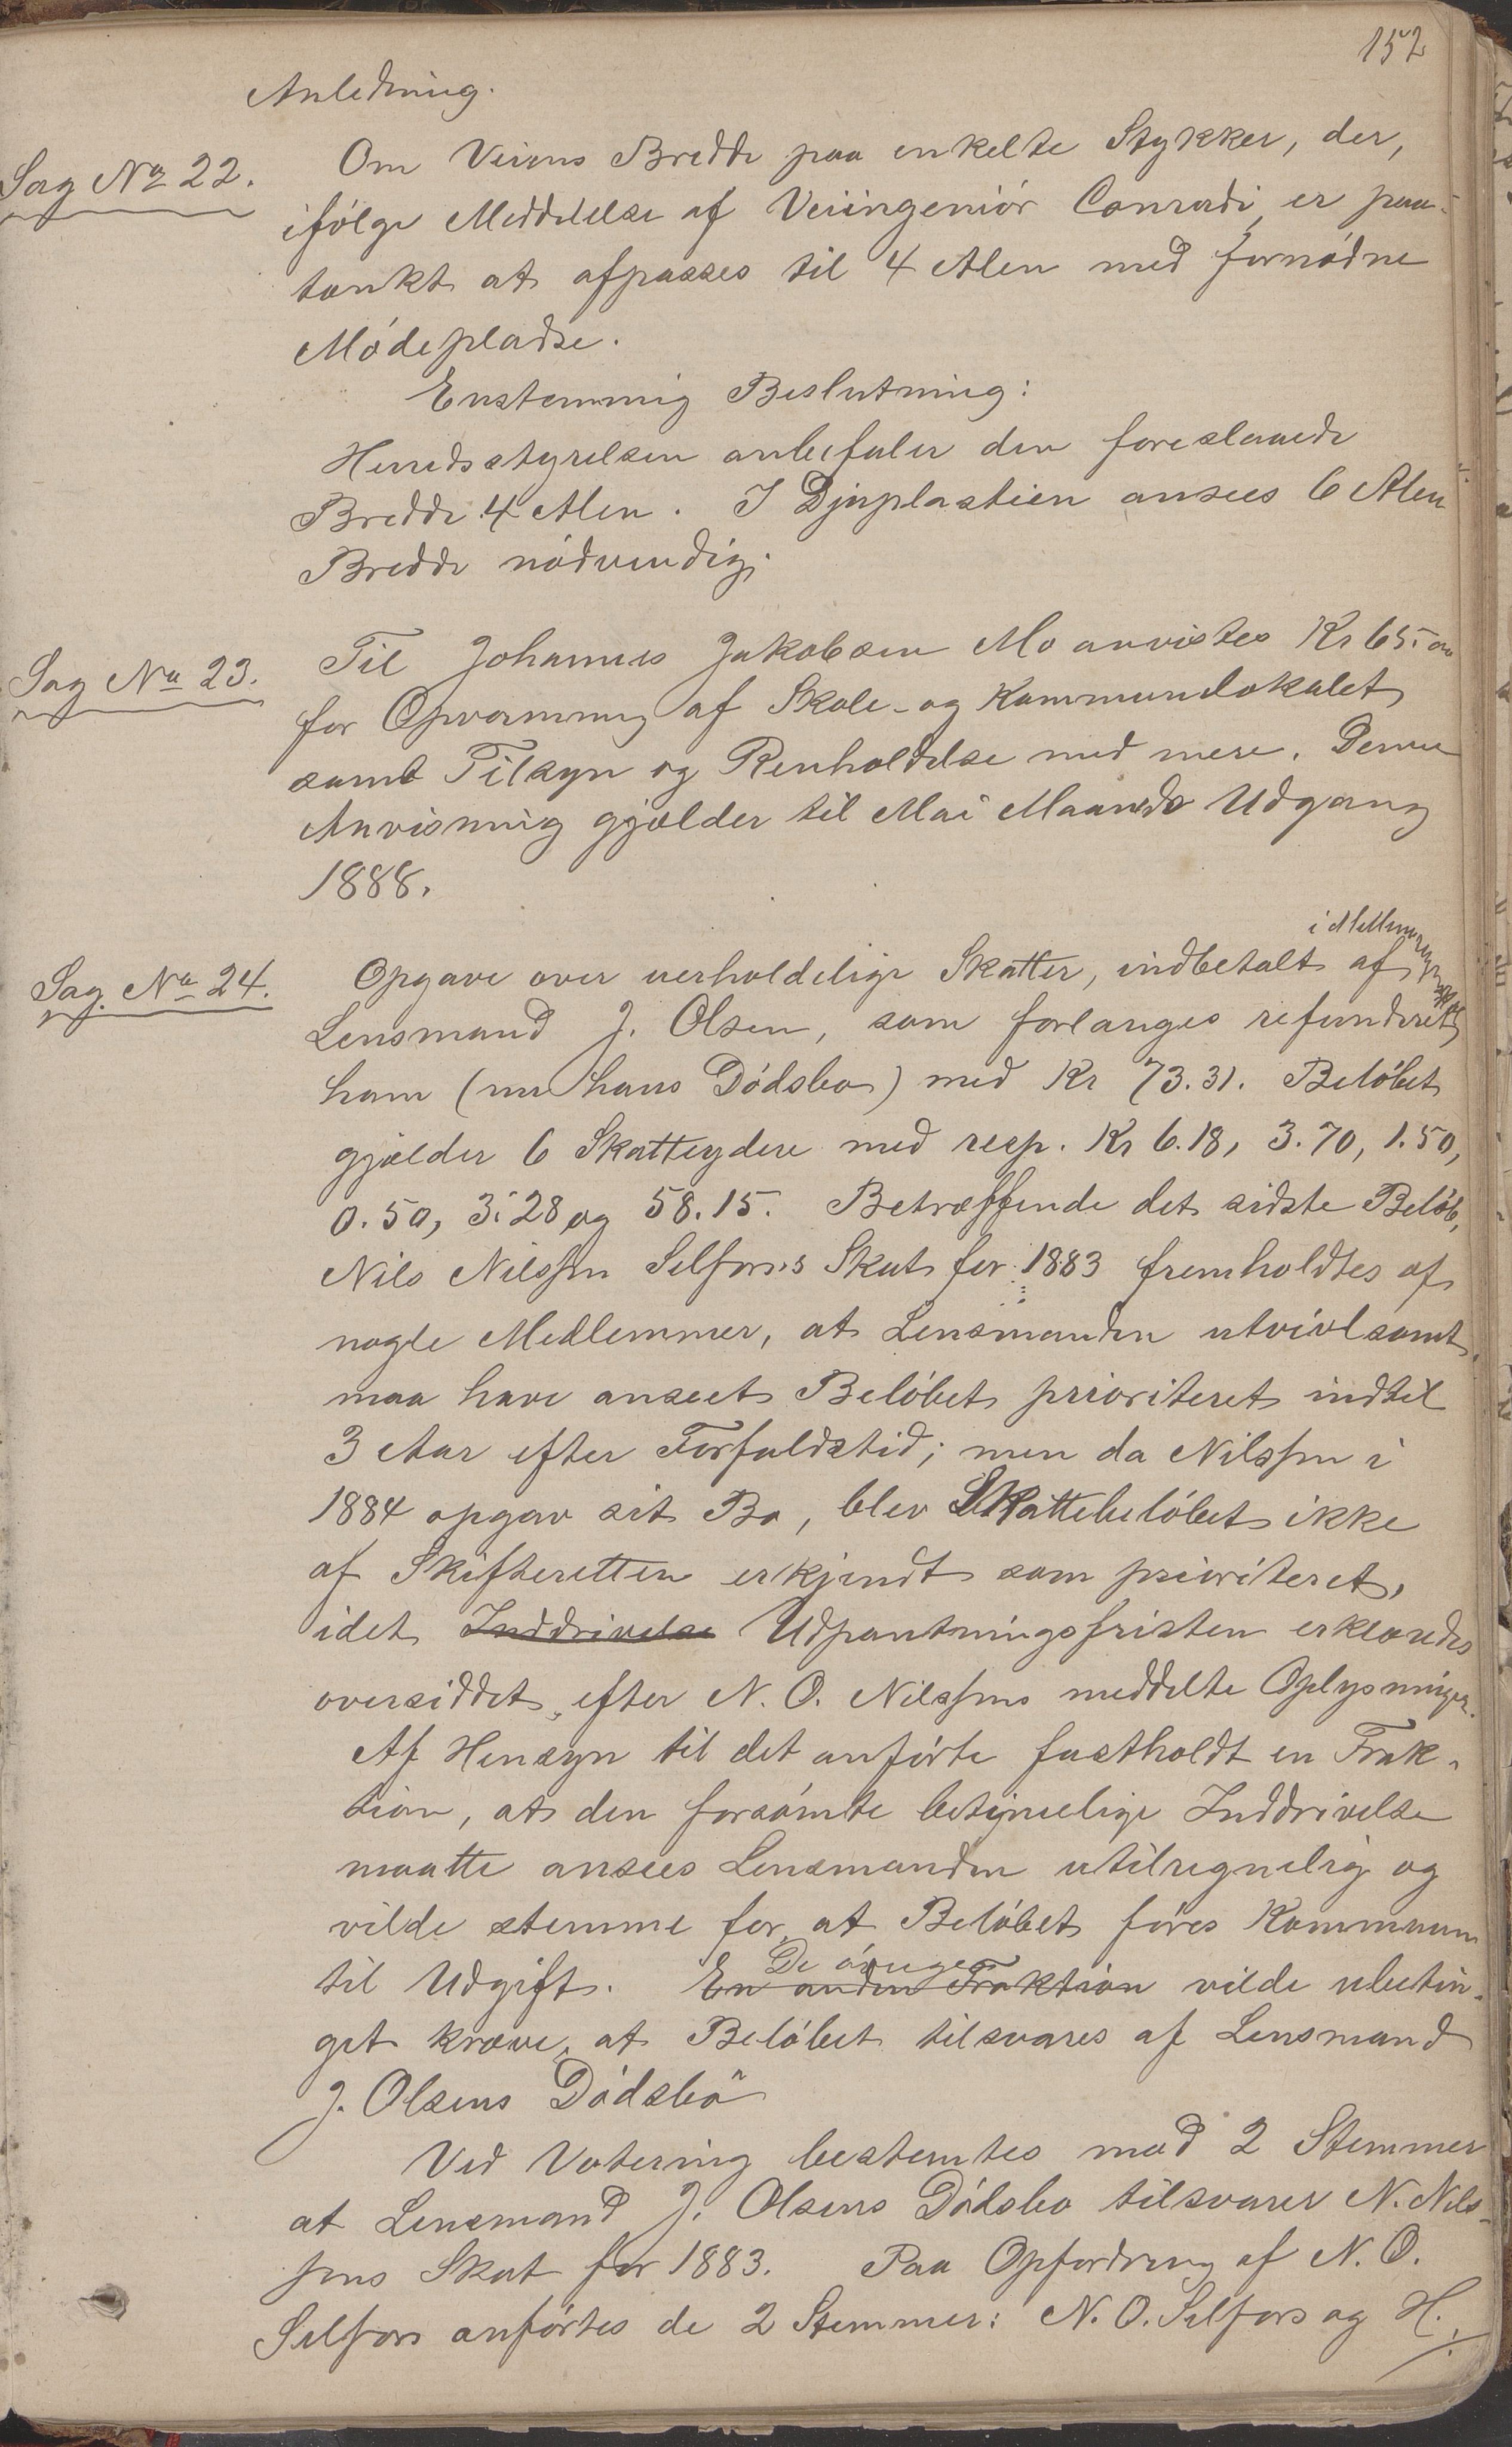 152
Anledning.
Sag No 22. Om Veiens Bredde paa enkelte Stykker, der,
ifölge Meddelelse af Veiingeniör Conradi, er paa-
tænkt at afpasses til 4 Alen med fornödne
Mödepladse.
Enstemmig Beslutning:
Herredsstyrelsen anbefaler den foreslaaede
Bredde 4 Alen. I ansees 6 Alen
Bredde nödvendig.
Sag No 23. Til Johannes Jakobsen Mo anvistes Kr 65.00
for Opvarmning af Skole- og Kommunelokalet
samt Tilsyn og Renholdelse med mere. Denne
Anvisning gjælder til Mai Maaneds Udgang
1888.
Sag No 24. Opgave over uerholdelige Skatter, indbetalt af
Lensmand J. Olsen, som forlanges refunderet
ham (nu hans Dödsbo) med Kr 73.31. Belöbet
gjælder 6 Skatteydere med resp. Kr 6.18, 3.70, 1.50,
0.50, 3.28 og 58.15. Betræffende det sidste Belöb,
Nils Nilssen Selfors's Skat for 1883 fremholdtes af
nogle Medlemmer, at Lensmanden utvivlsomt
maa have anseet Belöbet prioriteret indtil
3 Aar efter Forfaldstid; men da Nilssen i
1884 opgav sit Bo, blev Skattebelöbet ikke
af Skifteretten erkjendt som prioriteret,
idet Inddrivelse Udpantningsfristen erklæredes
oversiddet, efter N. O. Nilssens meddelte Oplysninger.
Af Hensyn til det anförte fastholdt en Frak-
tion, at den forsömte betimelige Inddrivelse
maatte ansees Lensmanden utilregnelig og
vilde stemme for, at Belöbet föres Kommunen
De övrige
til Udgift. En anden Fraktion vilde ubetin-
get kræve, at Belöbet tilsvares af Lensmand
J. Olsens Dödsbo
Ved Votering bestemtes mod 2 Stemmer
at Lensmand J. Olsens Dödsbo tilsvarer N. Nils-
sens Skat for 1883. Paa Opfordring af N. O.
Selfors anförtes de 2 Stemmer: N. O. Selfors og H.